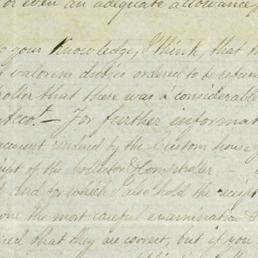 or even an adequate allowance,
to your Knowledge, I think, that th
valorem duties ordered to be refun
roller that there was a considerabl
Acct. – For further informat
ocument rendered by the Custom hous
ipt of the Collector & Comptroller –
And for which I also hold the receipt
one the most careful examination &
ced that they are correct, but if you